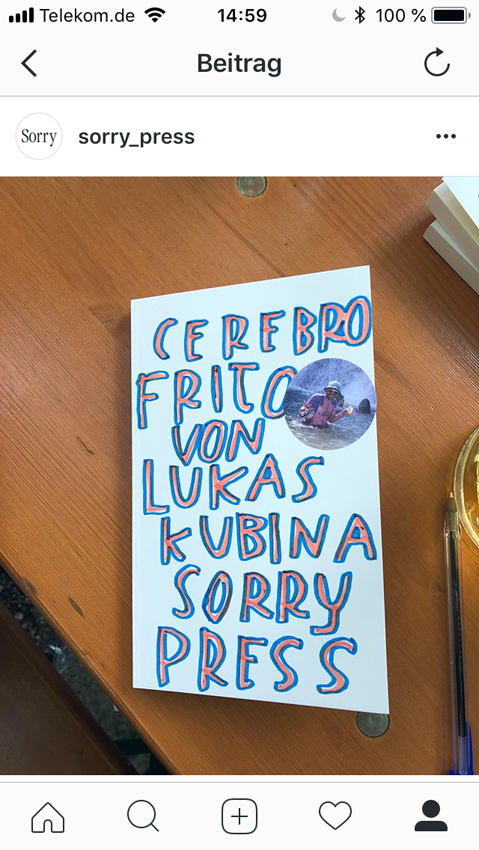 Telekom.de 14:59 100 %
Beitrag
Sorry sorry_press
CEREBRO
FRITO
VON
LUKAS
KUBINA
SORRY
PRESS